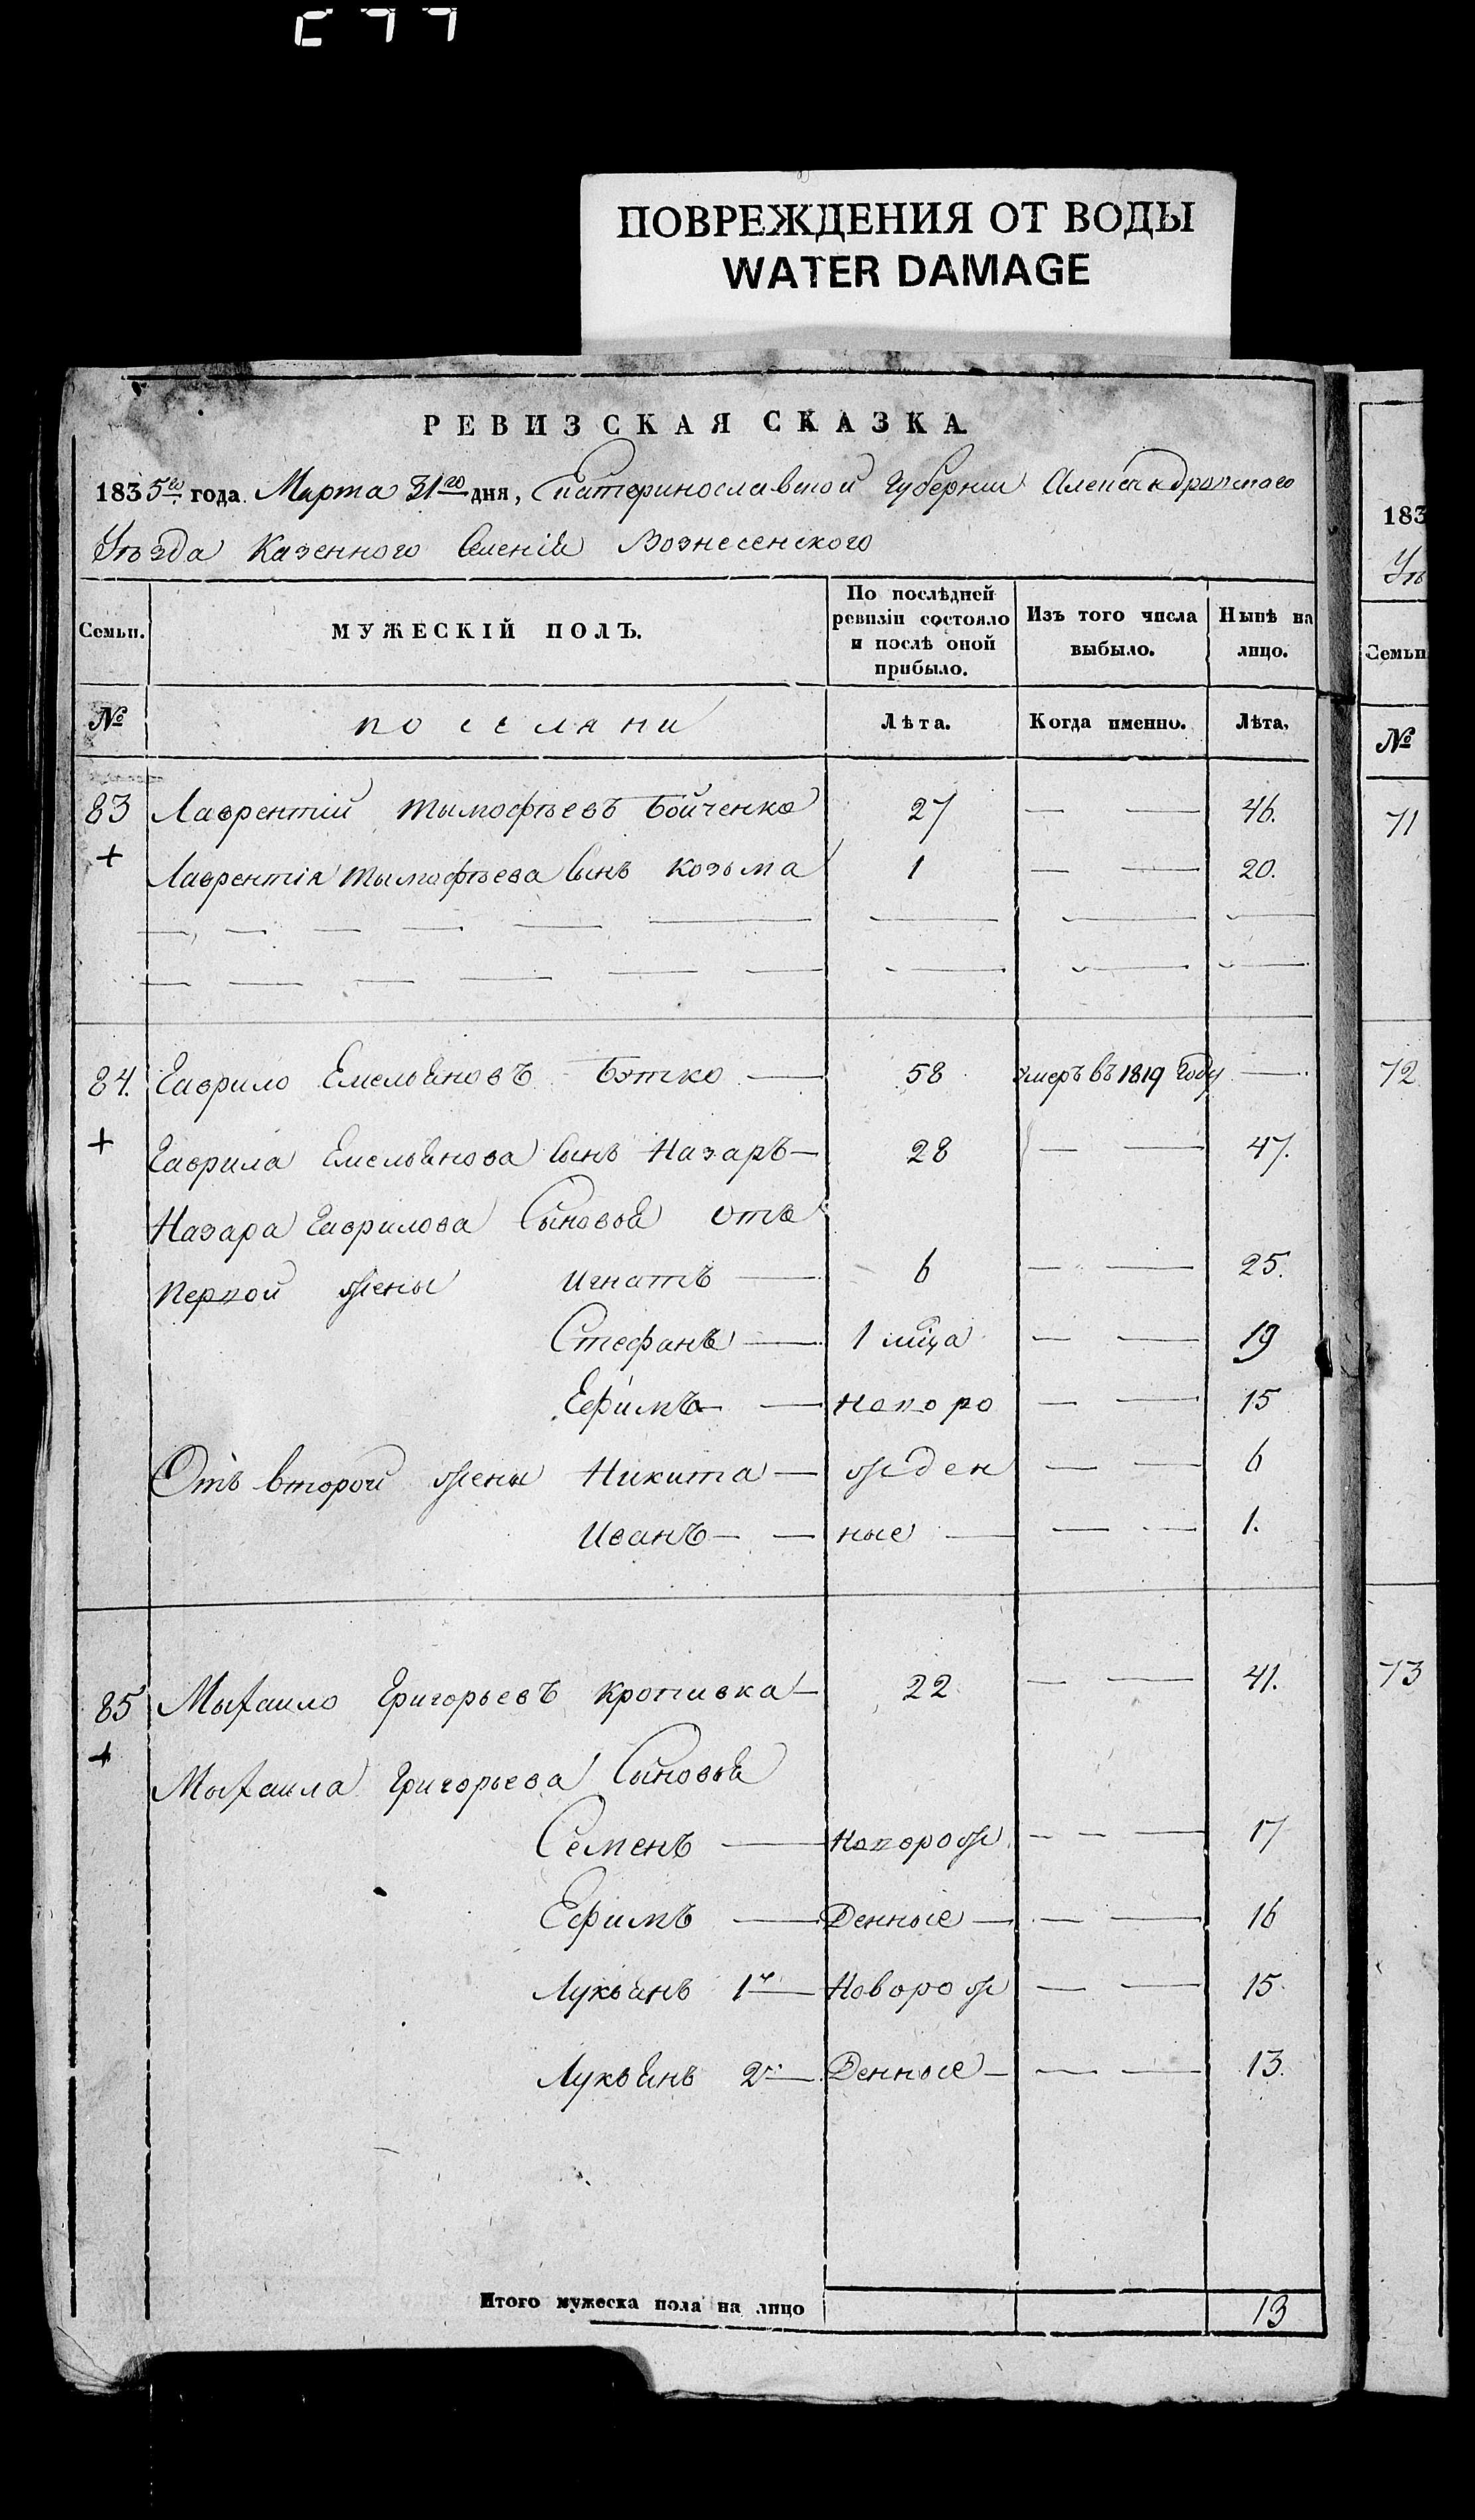 ПОВРЕЖДЕНИЯ ОТ ВОДЫ
WATER DAMAGE
РЕВИЗСКАЯ СКАЗКА
1835го года Марта 31го дня, Екатеринославской Губернии Александровскаго
Уѣзда Казенного Селенія Вознесенского
Семьи. МУЖЕСКІЙ ПОЛЪ. По послѣдней ревизіи состояло и послѣ оной прибыло. Изъ того числа выбыло. Нынѣ на лицо.
№ поселяни Лѣта. Когда именно. Лѣта.
83 Лаврентій Тымофѣевъ Бойченко 27 — — 46.
+ Лаврентія Тымофѣева Сынъ Козьма 1 — — 20.
84. Гаврило Емельяновъ Бутко — 58 Умеръ въ 1819 Году —
+ Гаврила Емельянова Сынъ Назаръ — 28 — — 47.
Назара Гаврилова Сыновья отъ
первой жены Игнатъ — 6 — — 25.
Стефанъ — 1 мца — — 19
Ефимъ — — новоро — — 15
Отъ второй жены Никита — жден — — 6
Иванъ — — ные — — — 1.
85 Мыхаило Григорьевъ Кропивка — 22 — — 41.
+ Мыхаила Григорьева Сыновья
Семенъ — Новорож — — — 17
Ефимъ — Денные — — — 16
Лукьянъ 1й — Новорож — — 15.
Лукьянъ 2й — Денные — — — 13.
Итого мужеска пола на лицо 13
183
Уѣ
Семьи
№
71
72
73